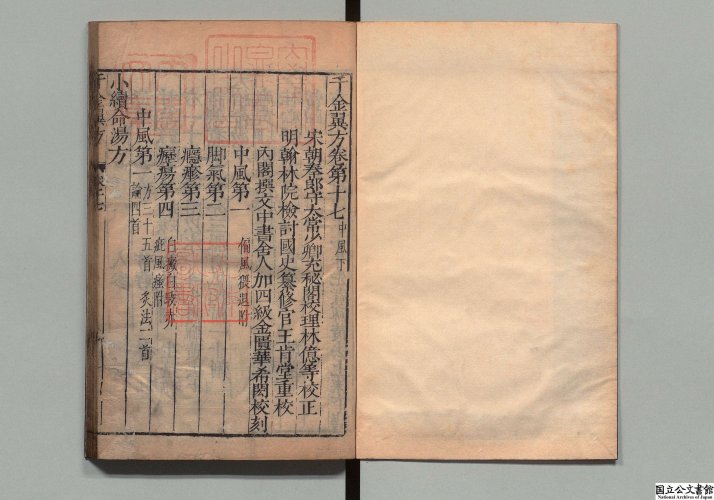 千金翼方卷第十七 中風下
宋朝奉郎守太常少卿充秘閣校理林億等校正
明翰林院檢討國史纂修官王肯堂重校
內閣撰文中書舍人加四級金匱華希閎校刻
中風第一 偏風猥退附
脚氣第二
癮疹第三
癧瘍第四 白癜白駮赤
疵風瘙附
中風第一 方三十五首 灸法二首
論四首
小續命湯方
千金翼方
卷十七
国立公文書館
National Archives of Japan